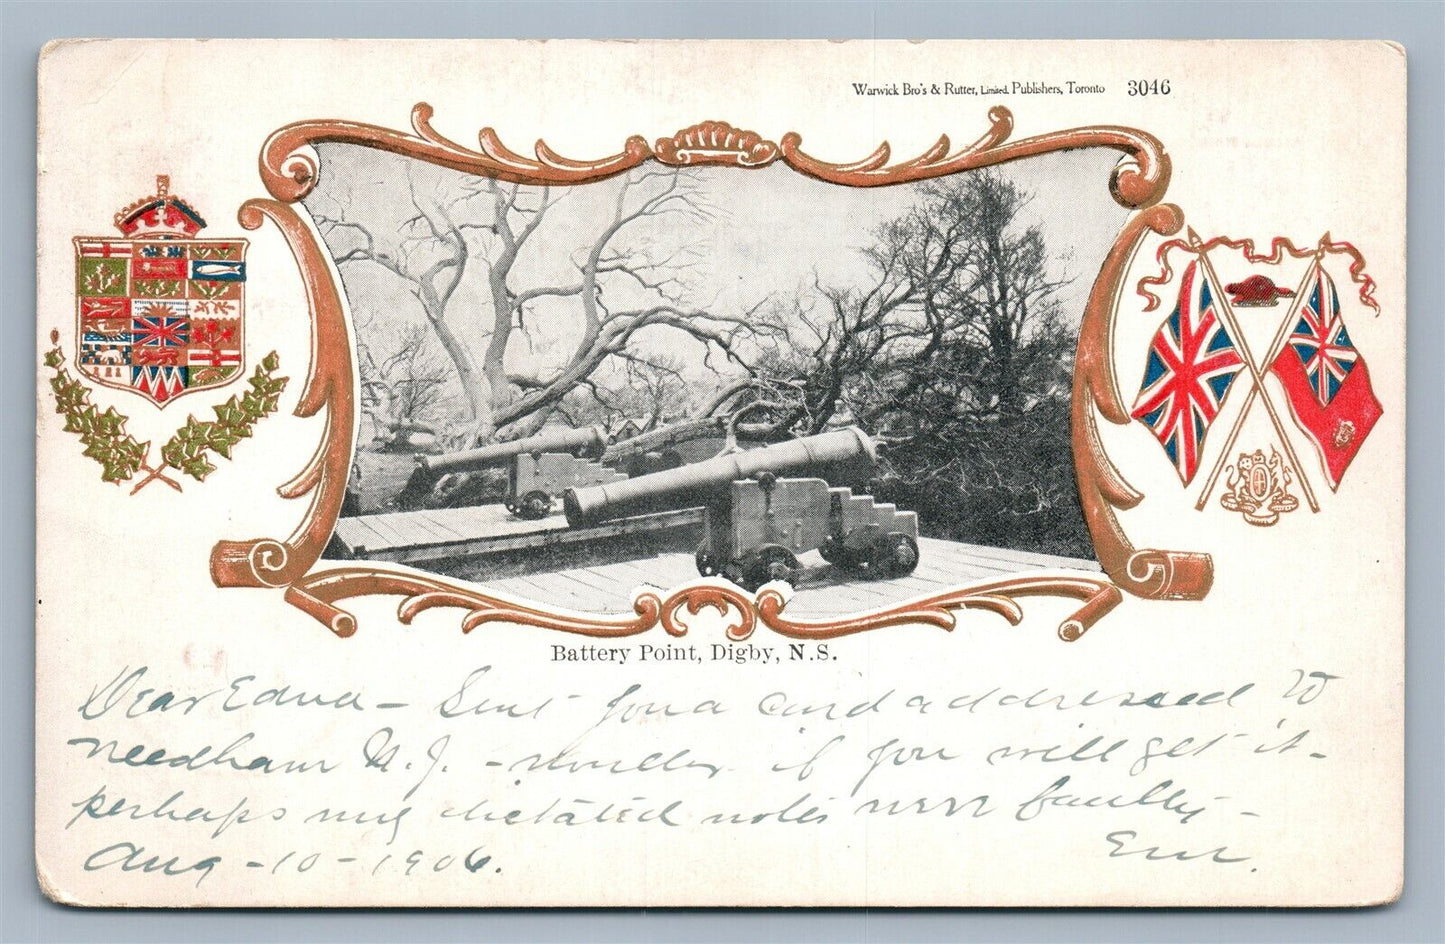 Warwick Bro's & Rutter, Limited, Publishers, Toronto 3046
Battery Point, Digby, N.S.
Dear Edna - Sent you a card addressed to
Needham N.J. - wonder if you will get it -
perhaps my dictated notes were faulty -
Aug - 10 - 1906.